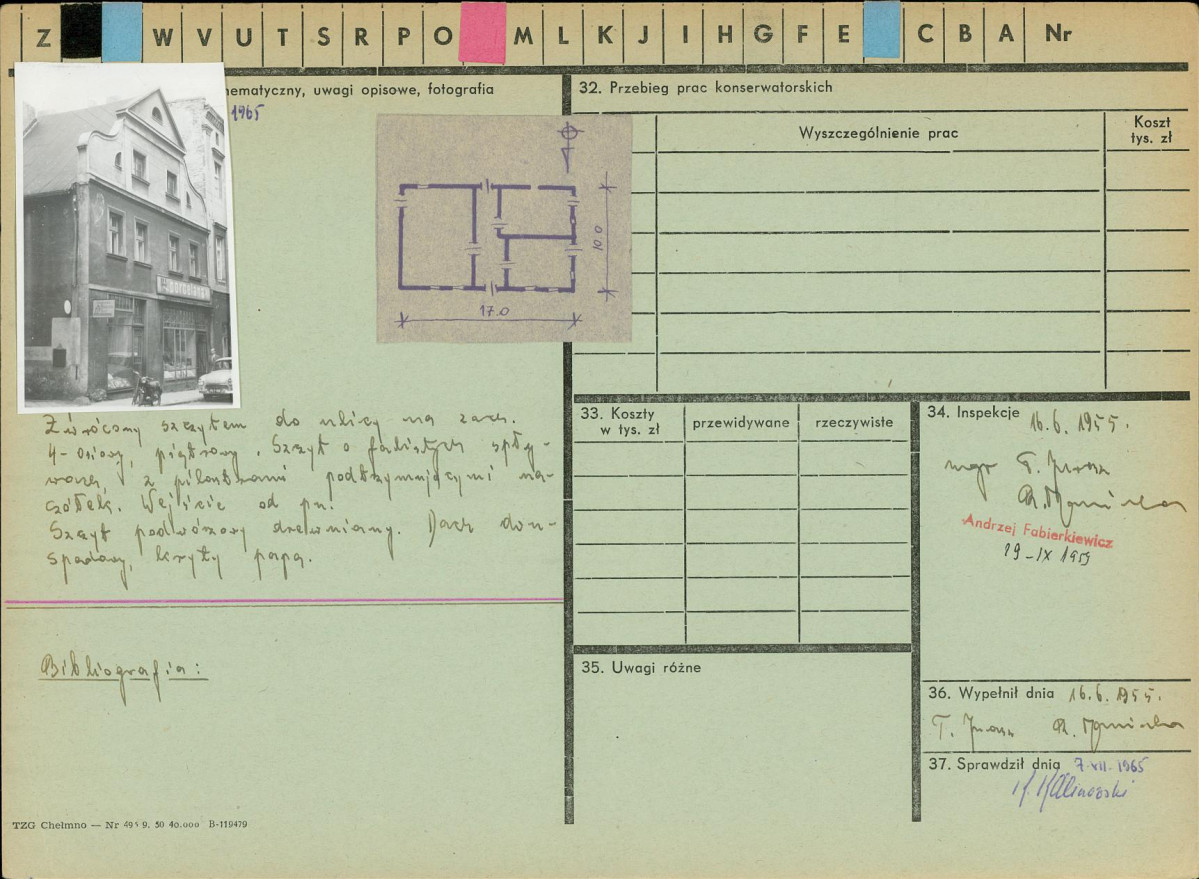 Z W V U T S R P O M L K J I H G F E C B A Nr
hematyczny, uwagi opisowe, fotografia
1965
porcelana
10.0
17.0
Zwrócony szczytem do ulicy na zach.
4-osiowy, piętrowy. Szczyt o falistych spły-
wach, z pilastrami podtrzymującymi na-
czółek. Wejście od pn.
Szczyt podwórzowy drewniany. Dach dwu-
spadowy, kryty papą.
Bibliografia:
TZG Chełmno — Nr 495 9. 50 40.000 B-119479
32. Przebieg prac konserwatorskich
Wyszczególnienie prac
Koszt
tys. zł
33. Koszty
w tys. zł
przewidywane
rzeczywiste
34. Inspekcje 16.6. 1955.
mgr T.
Andrzej Fabierkiewicz
29-IX 1959
35. Uwagi różne
36. Wypełnił dnia 16.6. 1955.
T.
37. Sprawdził dnia 7.XII.1965
K Kalinowski